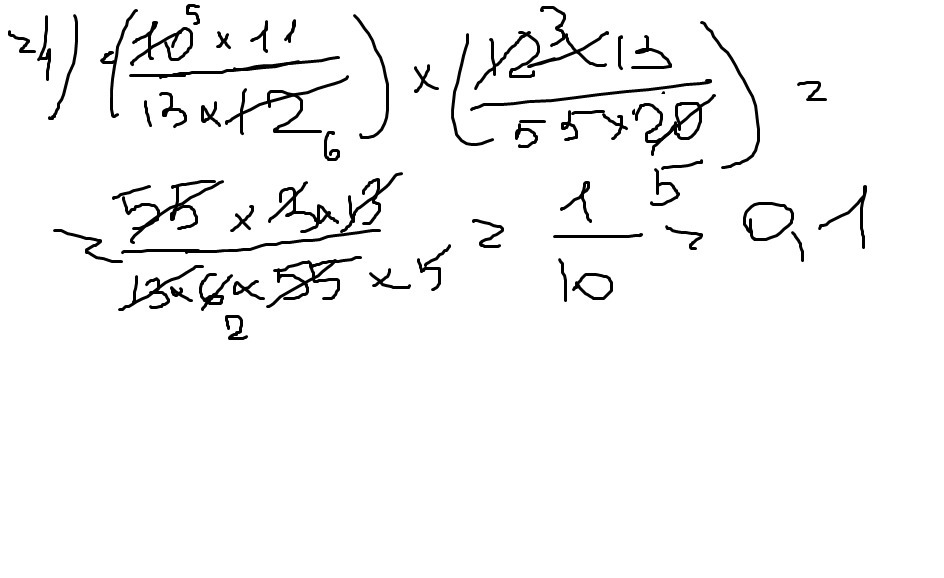 24) (10⁵ × 11 / 13 × 12₆) × (12³ × 13 / 55 × 20₅) =
= 55 × 3 × 13 / 13 × 6₂ × 55 × 5 = 1 / 10 = 0,1